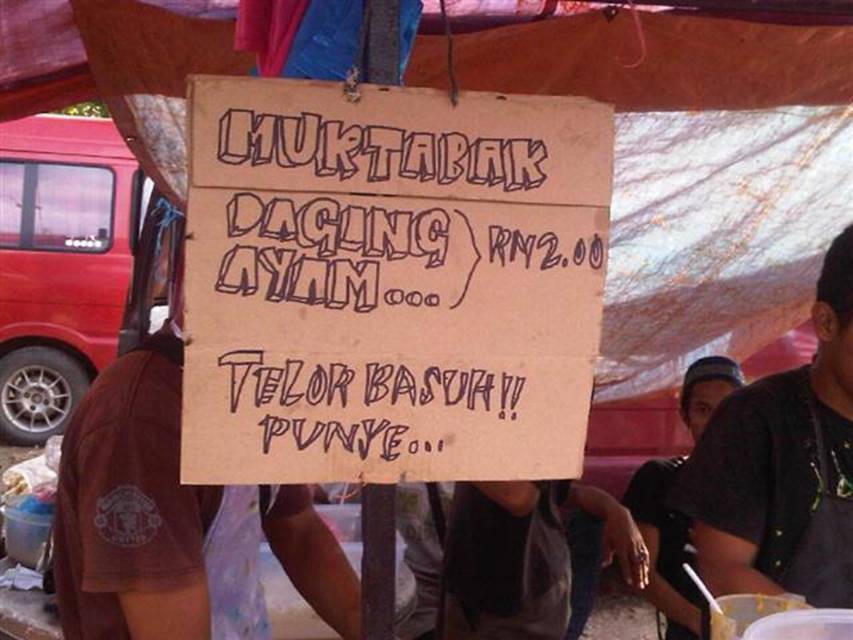 MURTABAK
DAGING
AYAM... ) RM2.00
TELOR BASUH!!
PUNYE...